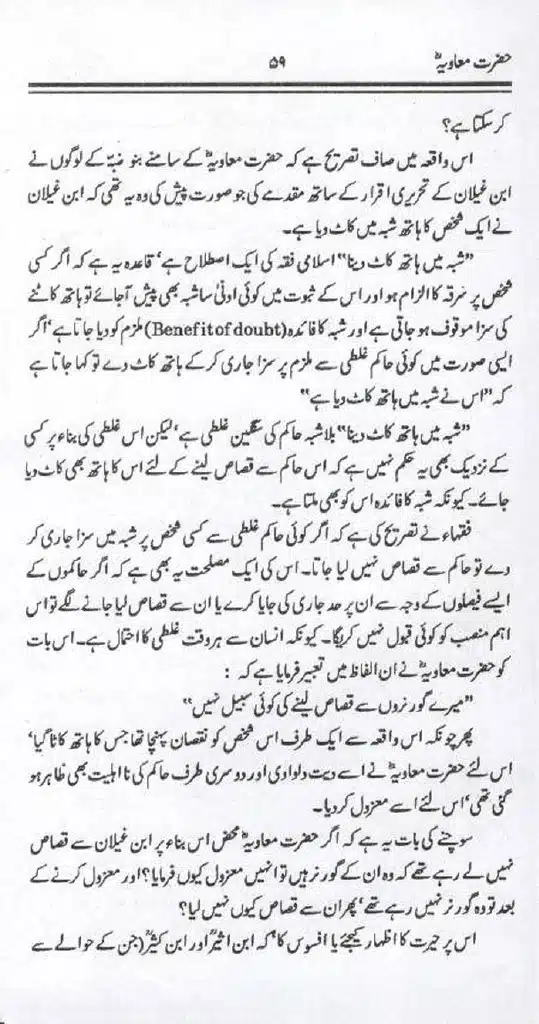 حضرت معاویہؓ ۵۹
کر سکتا ہے؟
اس واقعہ میں صاف تصریح ہے کہ حضرت معاویہؓ کے سامنے بنو ضبہ کے لوگوں نے
ابن غیلان کے تحریری اقرار کے ساتھ مقدمے کی جو صورت پیش کی وہ یہ تھی کہ ابن غیلان
نے ایک شخص کا ہاتھ شبہ میں کاٹ دیا ہے۔
”شبہ میں ہاتھ کاٹ دینا“ اسلامی فقہ کی ایک اصطلاح ہے‘ قاعدہ یہ ہے کہ اگر کسی
شخص پر سرقہ کا الزام ہو اور اس کے ثبوت میں کوئی ادنیٰ سا شبہ بھی پیش آجائے تو ہاتھ کاٹنے
کی سزا موقوف ہو جاتی ہے اور شبہ کا فائدہ (Benefit of doubt) ملزم کو دیا جاتا ہے‘ اگر
ایسی صورت میں کوئی حاکم غلطی سے ملزم پر سزا جاری کرکے ہاتھ کاٹ دے تو کہا جاتا ہے
کہ ”اس نے شبہ میں ہاتھ کاٹ دیا ہے“
”شبہ میں ہاتھ کاٹ دینا“ بلاشبہ حاکم کی سنگین غلطی ہے‘ لیکن اس غلطی کی بناء پر کسی
کے نزدیک بھی یہ حکم نہیں ہے کہ اس حاکم سے قصاص لینے کے لئے اس کا ہاتھ بھی کاٹ دیا
جائے۔ کیونکہ شبہ کا فائدہ اس کو بھی ملتا ہے۔
فقہاء نے تصریح کی ہے کہ اگر کوئی حاکم غلطی سے کسی شخص پر شبہ میں سزا جاری کر
دے تو حاکم سے قصاص نہیں لیا جاتا۔ اس کی ایک مصلحت یہ بھی ہے کہ اگر حاکموں کے
ایسے فیصلوں کے وجہ سے ان پر حد جاری کی جایا کرے یا ان سے قصاص لیا جانے لگے تو اس
اہم منصب کو کوئی قبول نہیں کریگا۔ کیونکہ انسان سے ہر وقت غلطی کا احتمال ہے۔ اس بات
کو حضرت معاویہؓ نے ان الفاظ میں تعبیر فرمایا ہے کہ :
”میرے گورنروں سے قصاص لینے کی کوئی سبیل نہیں“
پھر چونکہ اس واقعہ سے ایک طرف اس شخص کو نقصان پہنچا تھا جس کا ہاتھ کاٹا گیا‘
اس لئے حضرت معاویہؓ نے اسے دیت دلوادی اور دوسری طرف حاکم کی نااہلیت بھی ظاہر ہو
گئی تھی‘ اس لئے اسے معزول کردیا۔
سوچنے کی بات یہ ہے کہ اگر حضرت معاویہؓ محض اس بناء پر ابن غیلان سے قصاص
نہیں لے رہے تھے کہ وہ ان کے گورنر ہیں تو انہیں معزول کیوں فرمایا؟ اور معزول کرنے کے
بعد تو وہ گورنر نہیں رہے تھے‘ پھر ان سے قصاص کیوں نہیں لیا؟
اس پر حیرت کا اظہار کیجئے یا افسوس کا‘ کہ ابن اثیرؒ اور ابن کثیرؒ (جن کے حوالے سے